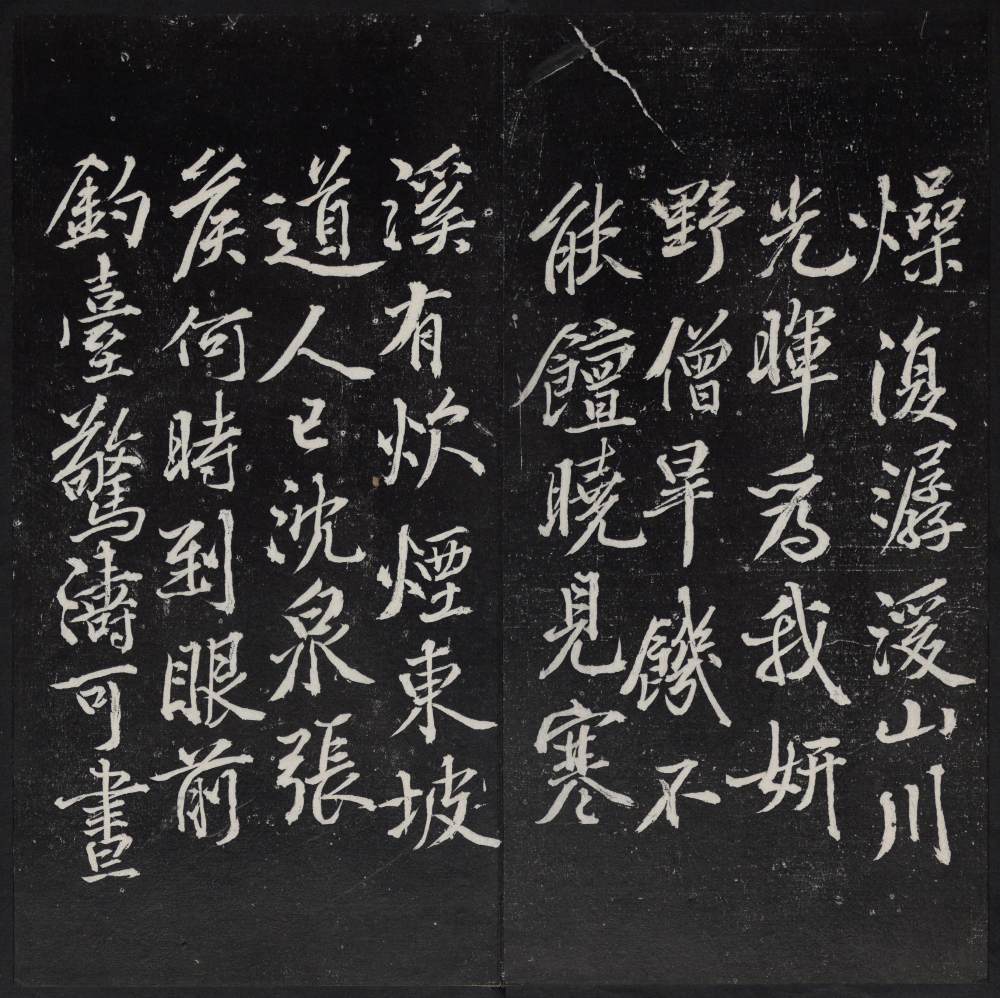 燥復潺湲山川
光暉為我妍
野僧旱饑不
能饘曉見寒
溪有炊煙東坡
道人已沈泉張
侯何時到眼前
釣臺驚濤可晝